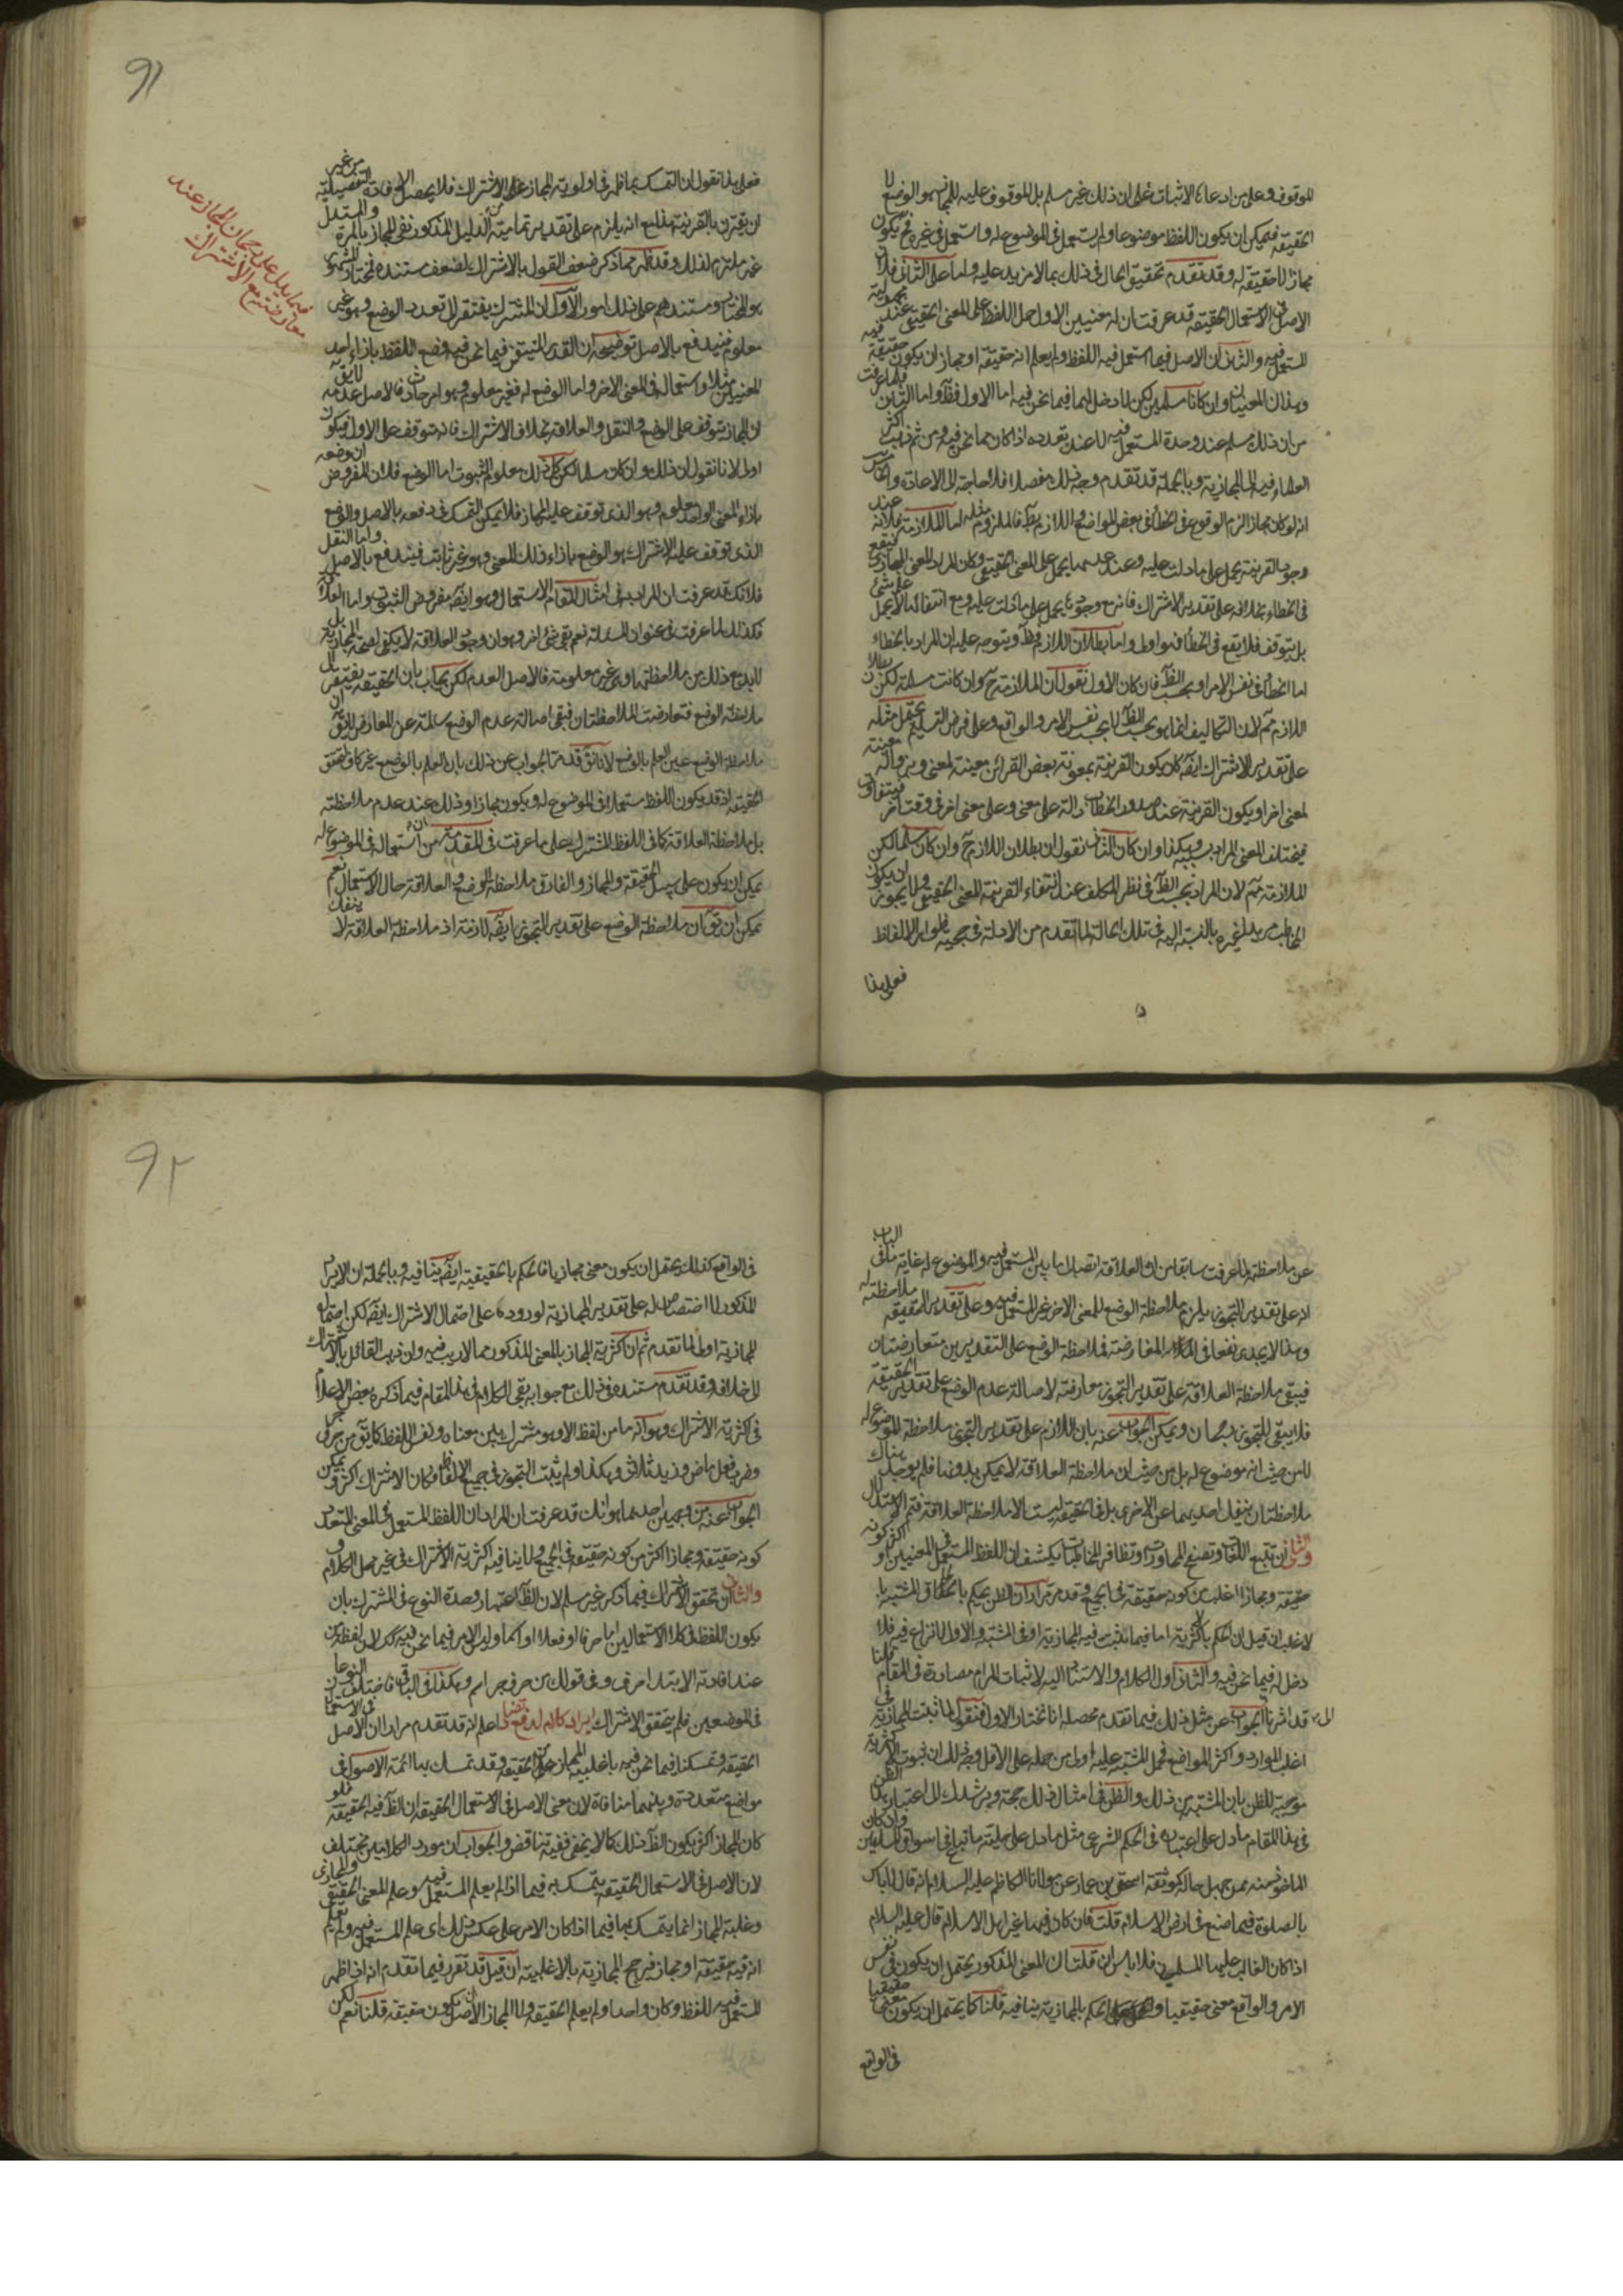 الموقوف وعلى من ادعاه الاثبات على ان ذلك غير مسلم بل الموقوف عليه للمجاز هو الوضع لا
الحقيقة فيمكن ان يكون اللفظ موضوعا ولم يستعمل في الموضوع له واستعمل في غيره فح يكون
مجازا لا حقيقة له وقد تقدم تحقيق الحال في ذلك بما لا مزيد عليه واما على الثاني فلان
الاصل في الاستعمال الحقيقة قد عرفت ان له معنيين الاول حمل اللفظ على المعنى الحقيقي عند
المستعمل فيه والثاني ان الاصل فيما استعمل فيه اللفظ ولم يعلم انه حقيقة او مجاز ان يكون حقيقة فيه
وهذان المعنيان وان كانا مسلمين لكن لا دخل لهما فيما نحن فيه اما الاول فظ واما الثاني فلما عرفت
من ان ذلك مسلم عند وحدة المستعمل فيه لا عند تعدده اذا كان مما نحن فيه ومن ثم ذهب اكثر
العلماء فيه الى المجازية وبالجملة قد تقدم وجه ذلك مفصلا فلا حاجة الى الاعادة
انه لو كان مجازا لزم الوقوع في الخطأ في بعض المواضع واللازم بط فالملزوم مثله اما الملازمة فلانه عند
وجود القرينة يحمل على ما دلت عليه وعند عدمها يحمل على المعنى الحقيقي وكان المراد المعنى المجازي فيقع
في الخطاء بخلافه على تقدير الاشتراك فانه مع وجودها يحمل على ما دلت عليه ومع انتفائها لا يحمل على شئ
بل يتوقف فلا يقع في الخطأ فهو اولى واما بطلان اللازم فظ ويتوجه عليه ان المراد بالخطاء
اما الخطأ في نفس الامر او بحسب الظ فان كان الاول نقول ان الملازمة ح وان كانت مسلمة لكن بطلان
اللازم مم لان التكاليف انما هو بحسب الظ لا بحسب نفس الامر والواقع وعلى فرض التسليم يتحقق مثله
على تقدير الاشتراك ايضا كان يكون القرينة بمعونة بعض القرائن معينة لمعنى
لمعنى اخر او يكون القرينة عند صدور الخطاب دالة على معنى وعلى معنى اخر في وقت آخر
فيختلف المعنى المراد بسببه وهكذا وان كان الثاني نقول ان بطلان اللازم ح وان كان مسلما لكن
الملازمة مم لان المراد بحسب الظ في نظر المكلف عند انتفاء القرينة المعنى الحقيقي ولا يجوز ان يكون
المخاطب مريدا غيره بالنسبة اليه في تلك الحالة لما تقدم من الادلة في حجية ظواهر الالفاظ
فعلى هذا
91
فعلى هذا نقول ان التمسك بما ظهر في اولوية المجاز على الاشتراك فلا يحصل الافادة التفصيلية من غير
ان يقترن بالقرينة هذا مع انه يلزم على تقدير تمامية الدليل المذكور نفي المجاز بالمرة والمستدل
غير ملتزم لذلك وقد ظهر مما ذكر ضعف القول بالاشتراك لضعف مستنده فمختار المشهور
هو المختار ومستندهم على ذلك امور الاول ان المشترك يفتقر الى تعدد الوضع وهو غير
معلوم فيندفع بالاصل توضيحه ان القدر المتيقن فيما نحن فيه وضع اللفظ بازاء احد
المعنيين مثلا واستعماله في المعنى الاخر واما الوضع له فغير معلوم وهو امر حادث فالاصل عدمه لا يق
ان المجاز يتوقف على الوضع والنقل والعلاقة بخلاف الاشتراك فانه يتوقف على الاول فيكون
اولى لانا نقول ان ذلك وان كان مسلما لكن كل ذلك معلوم الثبوت اما الوضع فلان المفروض ان وضعه
بازاء المعنى الواحد معلوم وهو الذي توقف عليه المجاز فلا يمكن التمسك في دفعه بالاصل والوضع
الذي توقف عليه الاشتراك هو الوضع بازاء ذلك المعنى وهو غير ثابت فيندفع بالاصل واما النقل
فلانك قد عرفت ان المراد به في امثال المقام الاستعمال وهو ايضا مفروض الثبوت واما العلاقة
فكذلك لما عرفت في عنوان المسئلة نعم بقي شئ اخر وهو ان وجود العلاقة لا يكفي لصحة المجازية بل
لا بد مع ذلك من ملاحظتها وهي غير معلومة فالاصل العدم لكن يجاب بان الحقيقة يفتقر الى
ملاحظة الوضع فتعارضت الملاحظتان فبقي اصالة عدم الوضع سالمة عن المعارض لا يق ان
ملاحظة الوضع عين العلم بالوضع لانا نقول قد الجواب عن ذلك بان العلم بالوضع غير كاف لتحقق
الحقيقة اذ قد يكون اللفظ مستعملا في الموضوع له ويكون مجازا وذلك عند عدم ملاحظته
بل ملاحظة العلاقة كما في اللفظ المشترك على ما عرفت في المقدمة من ان استعماله في الموضوع له
يمكن ان يكون على سبيل الحقيقة والمجاز والفارق ملاحظة الوضع والعلاقة حال الاستعمال نعم
يمكن ان يق ان ملاحظة الوضع على تقدير التجوز ايضا لازمة اذ ملاحظة العلاقة لا ينفك
فيما يدل على رجحان المجاز عند
معارضته مع الاشتراك
عن ملاحظته لما عرفت سابقا من ان العلاقة اتصال ما بين المستعمل فيه والموضوع له غاية ما في الباب
انه على تقدير التجوز يلزم ملاحظة الوضع للمعنى الاخر غير المستعمل فيه وعلى تقدير الحقيقة ملاحظته له
وهذا لا يجدي نفعا في المعارضة فملاحظة الوضع على التقديرين متعارضتان
فيبقى ملاحظة العلاقة على تقدير التجوز معارضة لاصالة عدم الوضع على تقدير الحقيقة
فلا يبقى للتجوز رجحان ويمكن الجواب عنه بان اللازم على تقدير التجوز ملاحظة الموضوع له
لا من حيث انه موضوع له بل من حيث ان ملاحظة العلاقة لا يمكن بدونها فلم يوجد هناك
ملاحظتان ينفك احديهما عن الاخرى بل الحقيقة ليست الا ملاحظة العلاقة فتم الاستدلال
والثاني ان تتبع اللغات وتصفح المحاورات وتظافر المخاطبات يكشف ان اللفظ المستعمل في المعنيين او اكثر كونه
حقيقة ومجازا اغلب من كونه حقيقة في الجميع وقد مر مرارا ان الظن يحكم بالحاق المشتبه با
لاغلب ان قيل ان الحكم بالاكثرية اما فيما ثبت فيه المجازية او في المشتبه والاول لا نزاع فيه فلا
دخل له فيما نحن فيه والثاني اول الكلام والاستناد اليه لاثبات المرام مصادرة في المقام قلنا
قد اشرنا الى الجواب عن مثل ذلك فيما تقدم محصله انا نختار الاول فنقول لما ثبت المجازية في
اغلب الموارد واكثر المواضع فحمل المشتبه عليه اولى من حمله على الاقل وجه ذلك ان ثبوت الاكثرية
موجبة للظن بان المشتبه من ذلك والظن في امثال ذلك حجة ويرشدك الى اعتبار هذا الظن
في هذا المقام ما دل على اعتباره في الحكم الشرعي مثل ما دل على حلية ما يباع في اسواق المسلمين وان كان
الماخوذ منه ممن جهل حاله كموثقة اسحق بن عمار عن مولانا الكاظم عليه السلام انه قال لا باس
بالصلوة فيما صنع في ارض الاسلام قلت فان كان فيها غير اهل الاسلام قال عليه السلام
اذا كان الغالب عليها المسلمين فلا باس ان قلت ان المعنى المذكور يحتمل ان يكون في نفس
الامر والواقع معنى حقيقيا والحكم بالمجازية ينافيه قلنا كما يحتمل ان يكون معنى حقيقيا
في الواقع
92
في الواقع كذلك يحتمل ان يكون معنى مجازيا فالحكم بالحقيقية ايضا ينافيه وبالجملة ان الايراد
المذكور لا اختصاص له على تقدير المجازية لوروده على احتمال الاشتراك ايضا لكن احتمال
المجازية اولى لما تقدم ثم ان اكثرية المجاز بالمعنى المذكور مما لا ريب فيه وان ذهب القائل بالاشتراك
الى خلافه وقد تقدم مستنده في ذلك مع جوابه بقي الكلام في هذا المقام فيما ذكره بعض الاعلام
في اكثرية الاشتراك وهو انه ما من لفظ الا وهو مشترك بين معناه ونفس اللفظ كما يق من حرف جر
وضرب فعل ماض وزيد ثلاثي وهكذا ولم يثبت التجوز في جميع الالفاظ فكان الاشتراك اكثر ويمكن
الجواب عنه من وجهين احدهما هو انك قد عرفت ان المراد ان اللفظ المستعمل في المعنى المتعدد
كونه حقيقة ومجازا اكثر من كونه حقيقة في الجميع ولا ينافيه اكثرية الاشتراك في غير محل الكلام
والثاني ان تحقق الاشتراك فيما ذكر غير مسلم لان الظ اعتبار وحدة النوع في المشترك بان
يكون اللفظ في كلا الاستعمالين اما حرفا او فعلا او اسما وليس الامر فيما نحن فيه كك لان لفظ من
عند افادته الابتداء حرف وفي قولك من حرف جر اسم وهكذا في البواقي فاختلف النوعان
في الموضعين فلم يتحقق الاشتراك ايراد كلام لدفع اعلم انه قد تقدم مرارا ان الاصل في الاستعمال
الحقيقة وتمسكنا فيما نحن فيه باغلبية المجاز على الحقيقة وقد تمسك بها ائمة الاصول في
مواضع متعددة وبينهما منافاة لان معنى الاصل في الاستعمال الحقيقة ان الظ فيه الحقيقة فلو
كان المجاز اكثر يكون الظ ذلك كما لا يخفى ففيه تناقض والجواب ان مورد الكلامين مختلف
لان الاصل في الاستعمال الحقيقة يتمسك به فيما اذا لم يعلم المستعمل فيه وعلم المعنى الحقيقي والمجازي
وغلبة المجاز انما يتمسك بها فيما اذا كان الامر على عكس ذلك اى علم المستعمل فيه ولم يعلم
انه فيه حقيقة او مجاز فيرجح المجازية بالاغلبية ان قيل قد تقرر فيما تقدم انه اذا ظهر
المستعمل فيه للفظ وكان واحدا ولم يعلم الحقيقة ولا المجاز الاصل ان يكون حقيقة قلنا نعم لكن